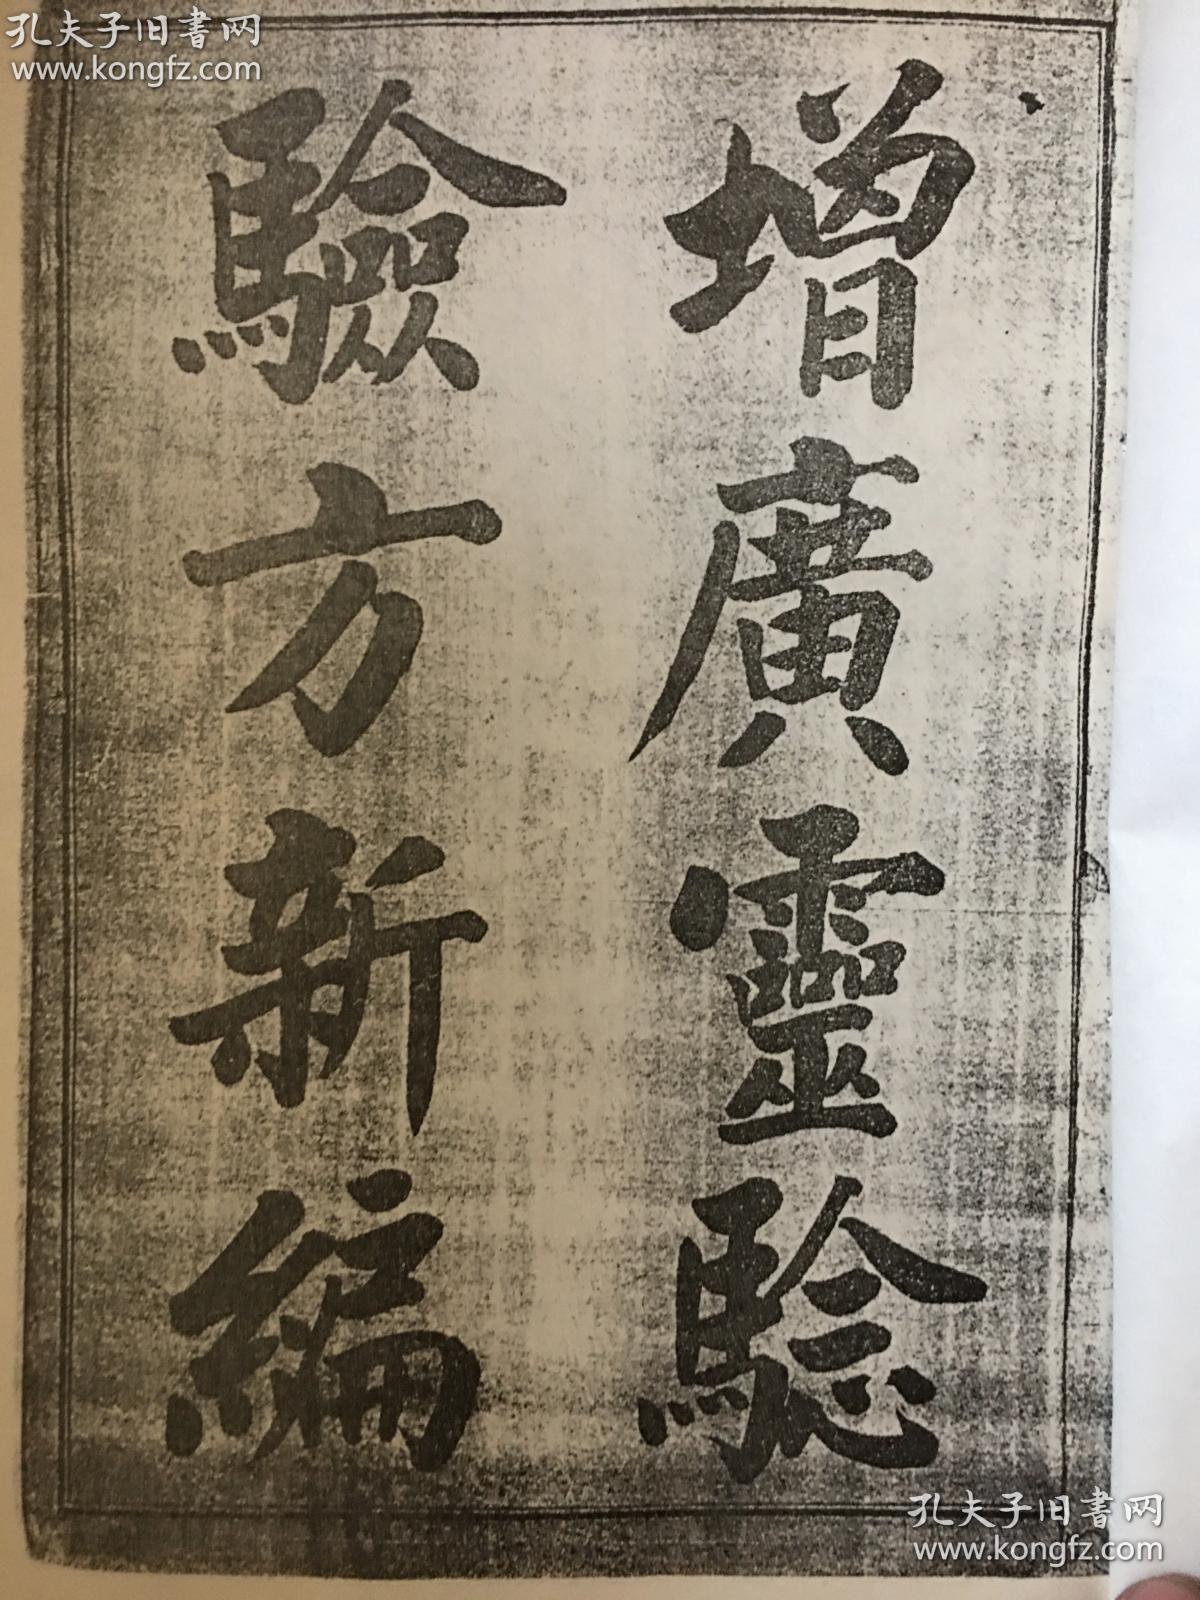 孔夫子旧書网
www.kongfz.com
增廣靈騐
驗方新編
孔夫子旧書网
www.kongfz.com